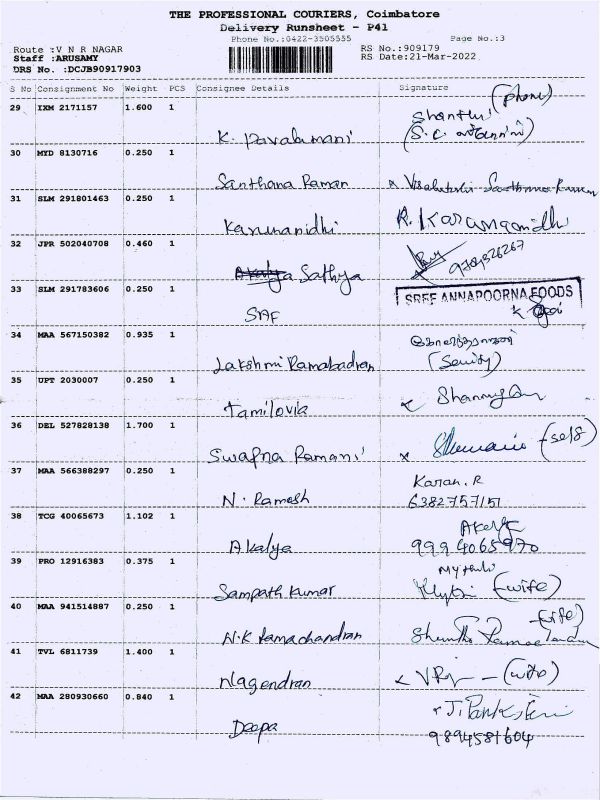 THE PROFESSIONAL COURIERS, Coimbatore
Delivery Runsheet - P41
Phone No.:0422-3505555
Page No.:3
Route :V N R NAGAR
RS No.:909179
Staff :ARUSAMY
RS Date:21-Mar-2022
DRS No. :DCJB90917903
S No Consignment No Weight PCS Consignee Details Signature
29 IXM 2171157 1.600 1
Shanthi (phone)
K. Pavalamani
30 MYD 8130716 0.250 1
Santhana Raman
31 SLM 291801463 0.250 1
Karunanidhi
32 JPR 502040708 0.460 1
Sathya
33 SLM 291783606 0.250 1
SREE ANNAPOORNA FOODS
SAF
34 MAA 567150382 0.935 1
Lakshmi Ramabadran
35 UPT 2030007 0.250 1
Tamilovia
36 DEL 527828138 1.700 1
(self)
Swapna Ramani
37 MAA 566388297 0.250 1
Karan.R
N. Ramesh 6382757151
38 TCG 40065673 1.102 1
Akalya 9994065970
39 PRO 12916383 0.375 1
Sampath Kumar (wife)
40 MAA 941514887 0.250 1
(wife)
N.K Ramachandran
41 TVL 6811739 1.400 1
Nagendran
42 MAA 280930660 0.840 1
Deepa 9894581604